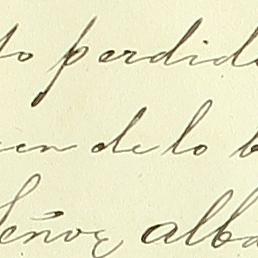 to perdid
en de lo b
Señor alba